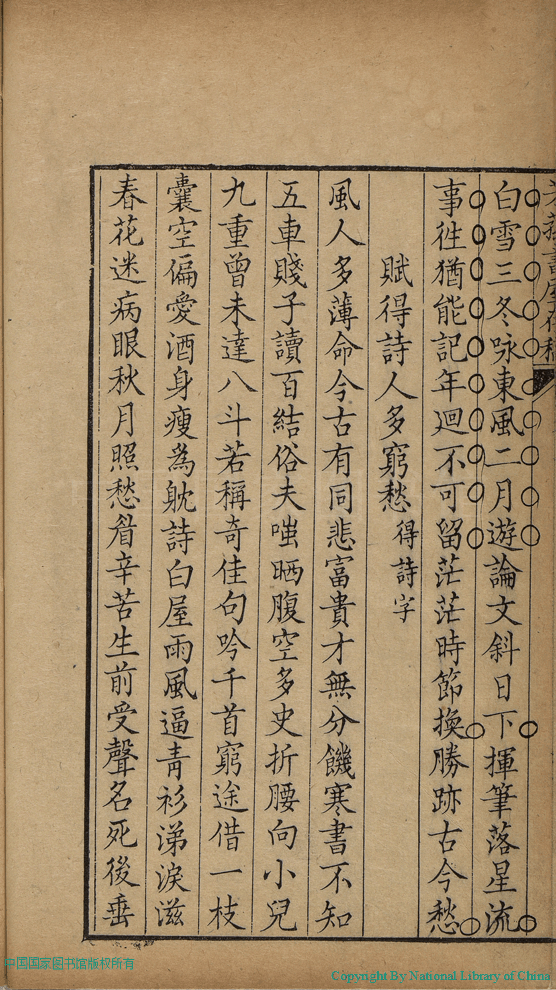 白雪三冬咏東風二月遊論文斜日下揮筆落星流
事徃猶能記年迴不可留茫茫時節換勝跡古今愁
賦得詩人多窮愁得詩字
風人多薄命今古有同悲富貴才無分饑寒書不知
五車賤子讀百結俗夫嗤晒腹空多史折腰向小兒
九重曾未達八斗若稱奇佳句吟千首窮途借一枝
囊空偏愛酒身瘦為躭詩白屋雨風逼青衫涕淚滋
春花迷病眼秋月照愁眉辛苦生前受聲名死後垂
中国国家图书馆版权所有
Copyright By National Library of China